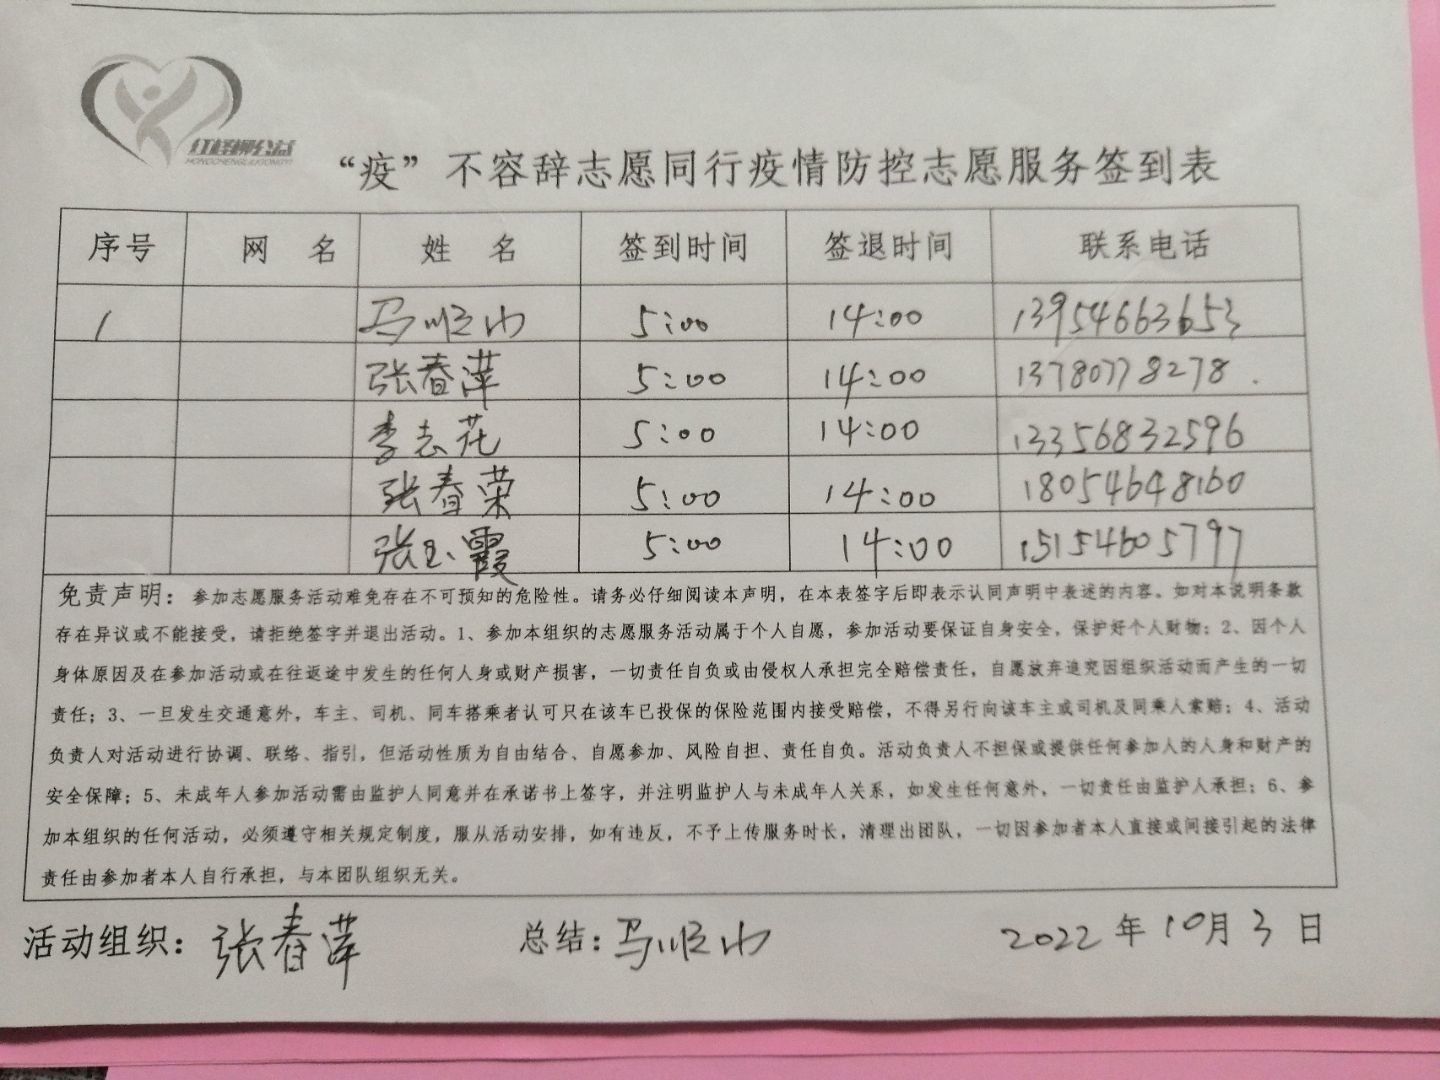 红柽柳公益
HONGCHENGLIUGONGYI
“疫”不容辞志愿同行疫情防控志愿服务签到表
序号 网 名 姓 名 签到时间 签退时间 联系电话
1 马顺山 5:00 14:00 13954663653
张春萍 5:00 14:00 13780778278
李志花 5:00 14:00 13356832596
张春荣 5:00 14:00 18054648160
张玉霞 5:00 14:00 15154605797
免责声明：参加志愿服务活动难免存在不可预知的危险性。请务必仔细阅读本声明，在本表签字后即表示认同声明中表述的内容。如对本说明条款
存在异议或不能接受，请拒绝签字并退出活动。1、参加本组织的志愿服务活动属于个人自愿，参加活动要保证自身安全，保护好个人财物；2、因个人
身体原因及在参加活动或在往返途中发生的任何人身或财产损害，一切责任自负或由侵权人承担完全赔偿责任，自愿放弃追究因组织活动而产生的一切
责任；3、一旦发生交通意外，车主、司机、同车搭乘者认可只在该车已投保的保险范围内接受赔偿，不得另行向该车主或司机及同乘人索赔；4、活动
负责人对活动进行协调、联络、指引，但活动性质为自由结合、自愿参加、风险自担、责任自负。活动负责人不担保或提供任何参加人的人身和财产的
安全保障；5、未成年人参加活动需由监护人同意并在承诺书上签字，并注明监护人与未成年人关系，如发生任何意外，一切责任由监护人承担；6、参
加本组织的任何活动，必须遵守相关规定制度，服从活动安排，如有违反，不予上传服务时长，清理出团队，一切因参加者本人直接或间接引起的法律
责任由参加者本人自行承担，与本团队组织无关。
活动组织：张春萍 总结：马顺山 2022年10月3日